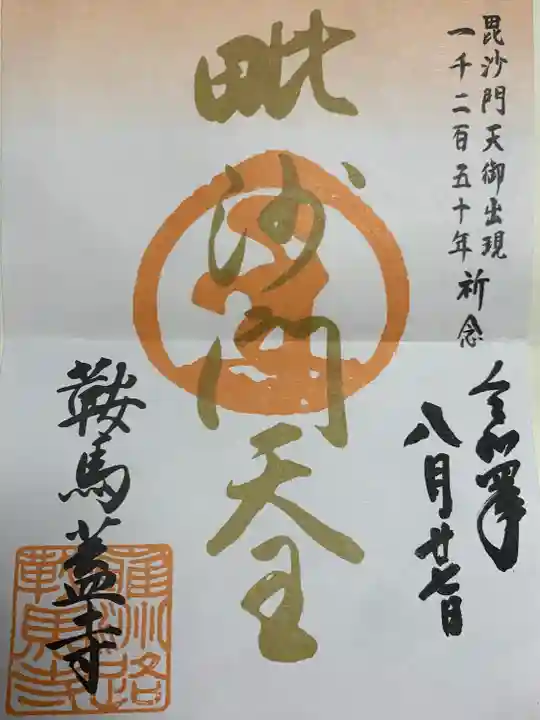 毘沙門天御出現
一千二百五十年 祈念
令和四年
八月廿七日
毗沙門天王
鞍馬蓋寺
雍州路
鞍馬寺